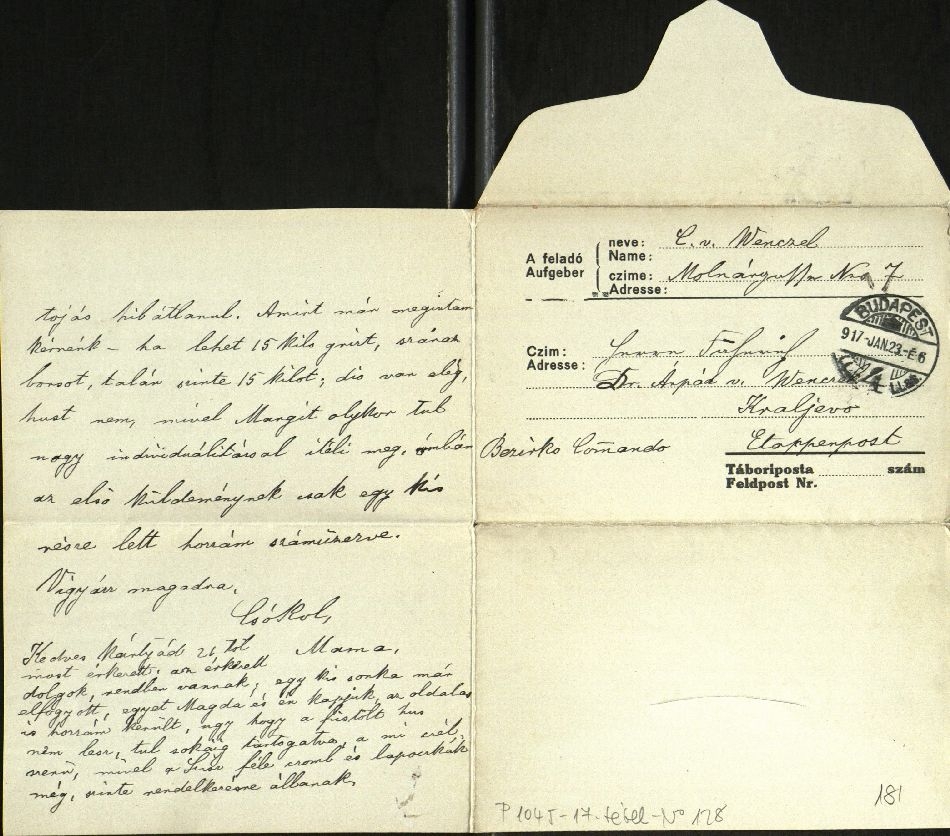 tojás hibátlanul. Amint már megirtam
kérnénk – ha lehet 15 kilo grízt, száraz
borsot, talán szinte 15 kilot; dio van elég,
hust nem, mivel Margit olykor tul
nagy individuálitással itéli meg, s
az első küldeménynek csak egy kis
része lett hozzám száműzve.
Vigyázz magadra,
Csókol,
Mama.
Kedves kártyád 21 től
most érkezett, az érkezett
dolgok, rendben vannak, egy kis sonka már
elfogyott, egyet Magda és én kapjuk, az oldalas
is hozzám került, ugy hogy a füstölt hus
nem lesz, tul sokáig tartogatva, a mi
mivel a féle comb és lapoczkák
még, szinte rendelkezésre állanak.
A feladó
Aufgeber
neve: C. v. Wenczel
Name:
czime: Molnárgasse Nro 7
Adresse:
BUDAPEST
917-JAN.23.-E6
Czim:
Adresse:
Herrn
Dr. Árpád v. Wenczel
Kraljevo
Bezirks Comando
Etappenpost
Táboriposta szám
Feldpost Nr.
P 1045-17. tétel-No 128
181